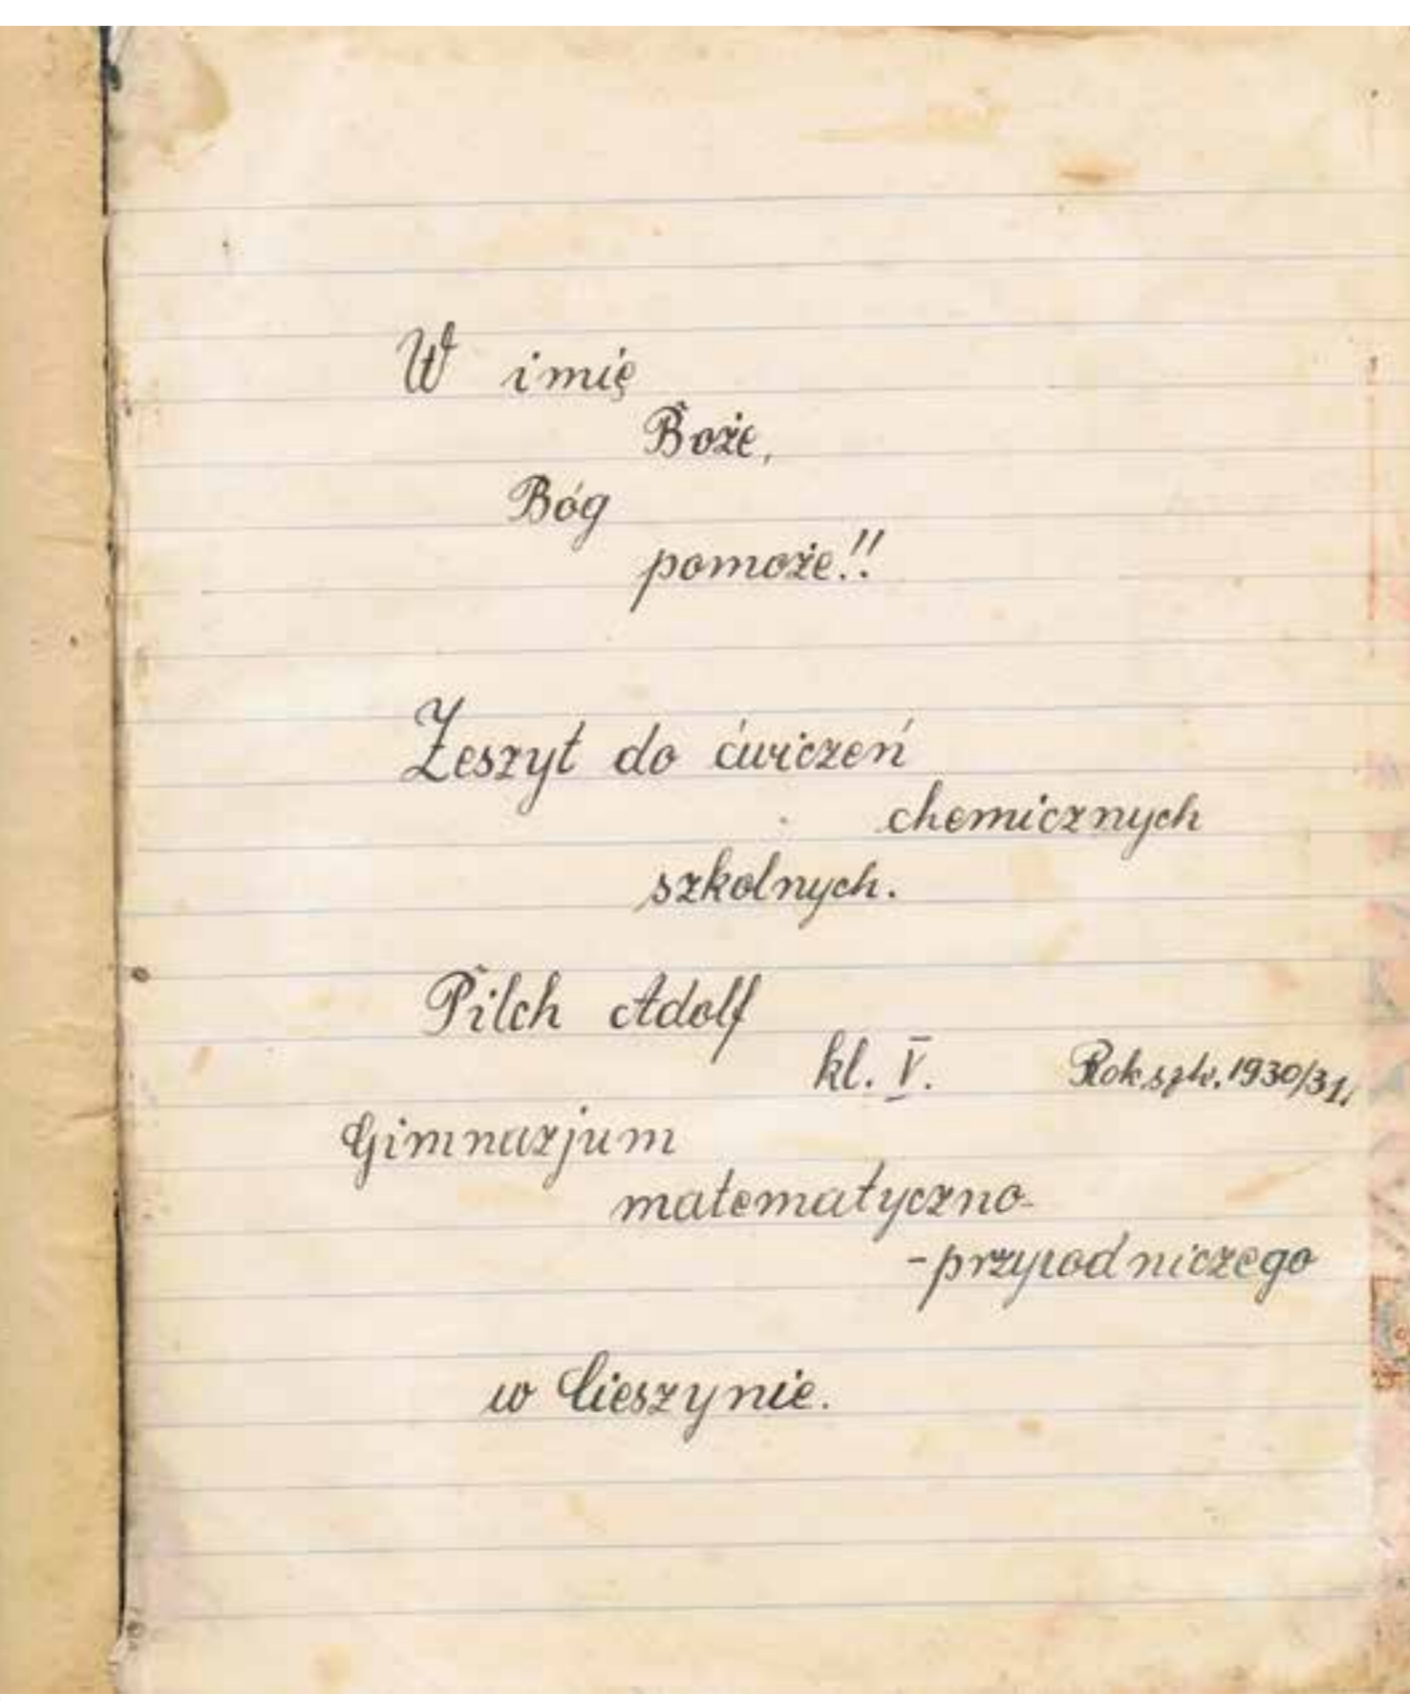 W imię
Boże,
Bóg
pomoże!!
Zeszyt do ćwiczeń
chemicznych
szkolnych.
Pilch Adolf
kl. V. Rok szk. 1930/31.
Gimnazjum
matematyczno-
-przyrodniczego
w Cieszynie.